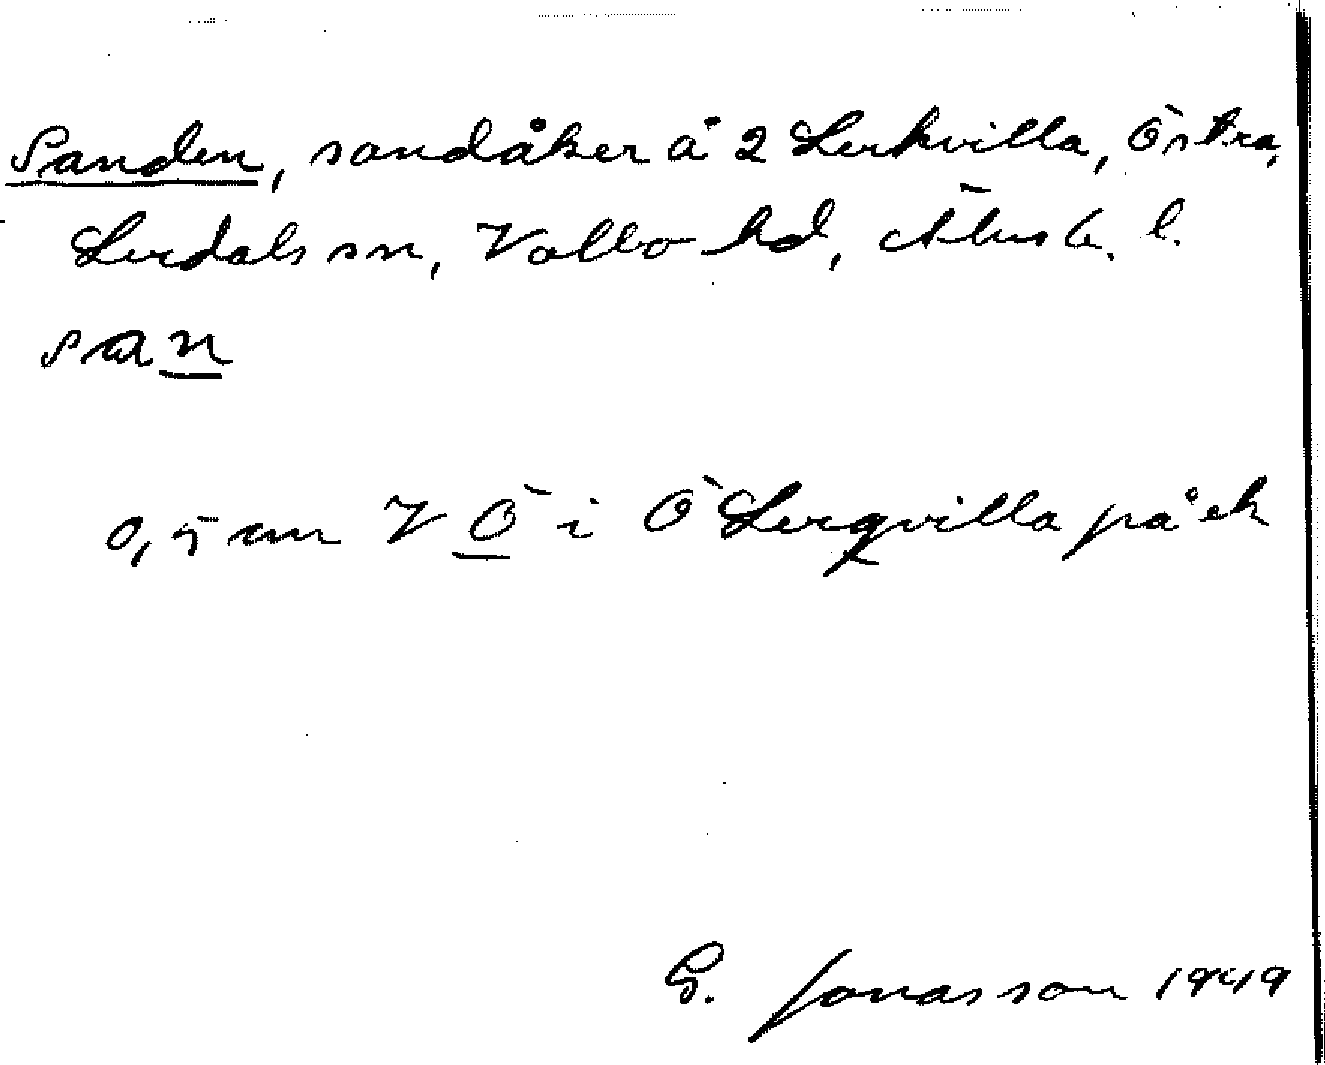 Sanden, sandåker å 2 Lerkvilla, Östra,
Lerdals sn, Valbo hd, Älvsb. l.
san
0,5 cm V Ö i Ö Lerqvilla på ek
G. Jonasson 1949